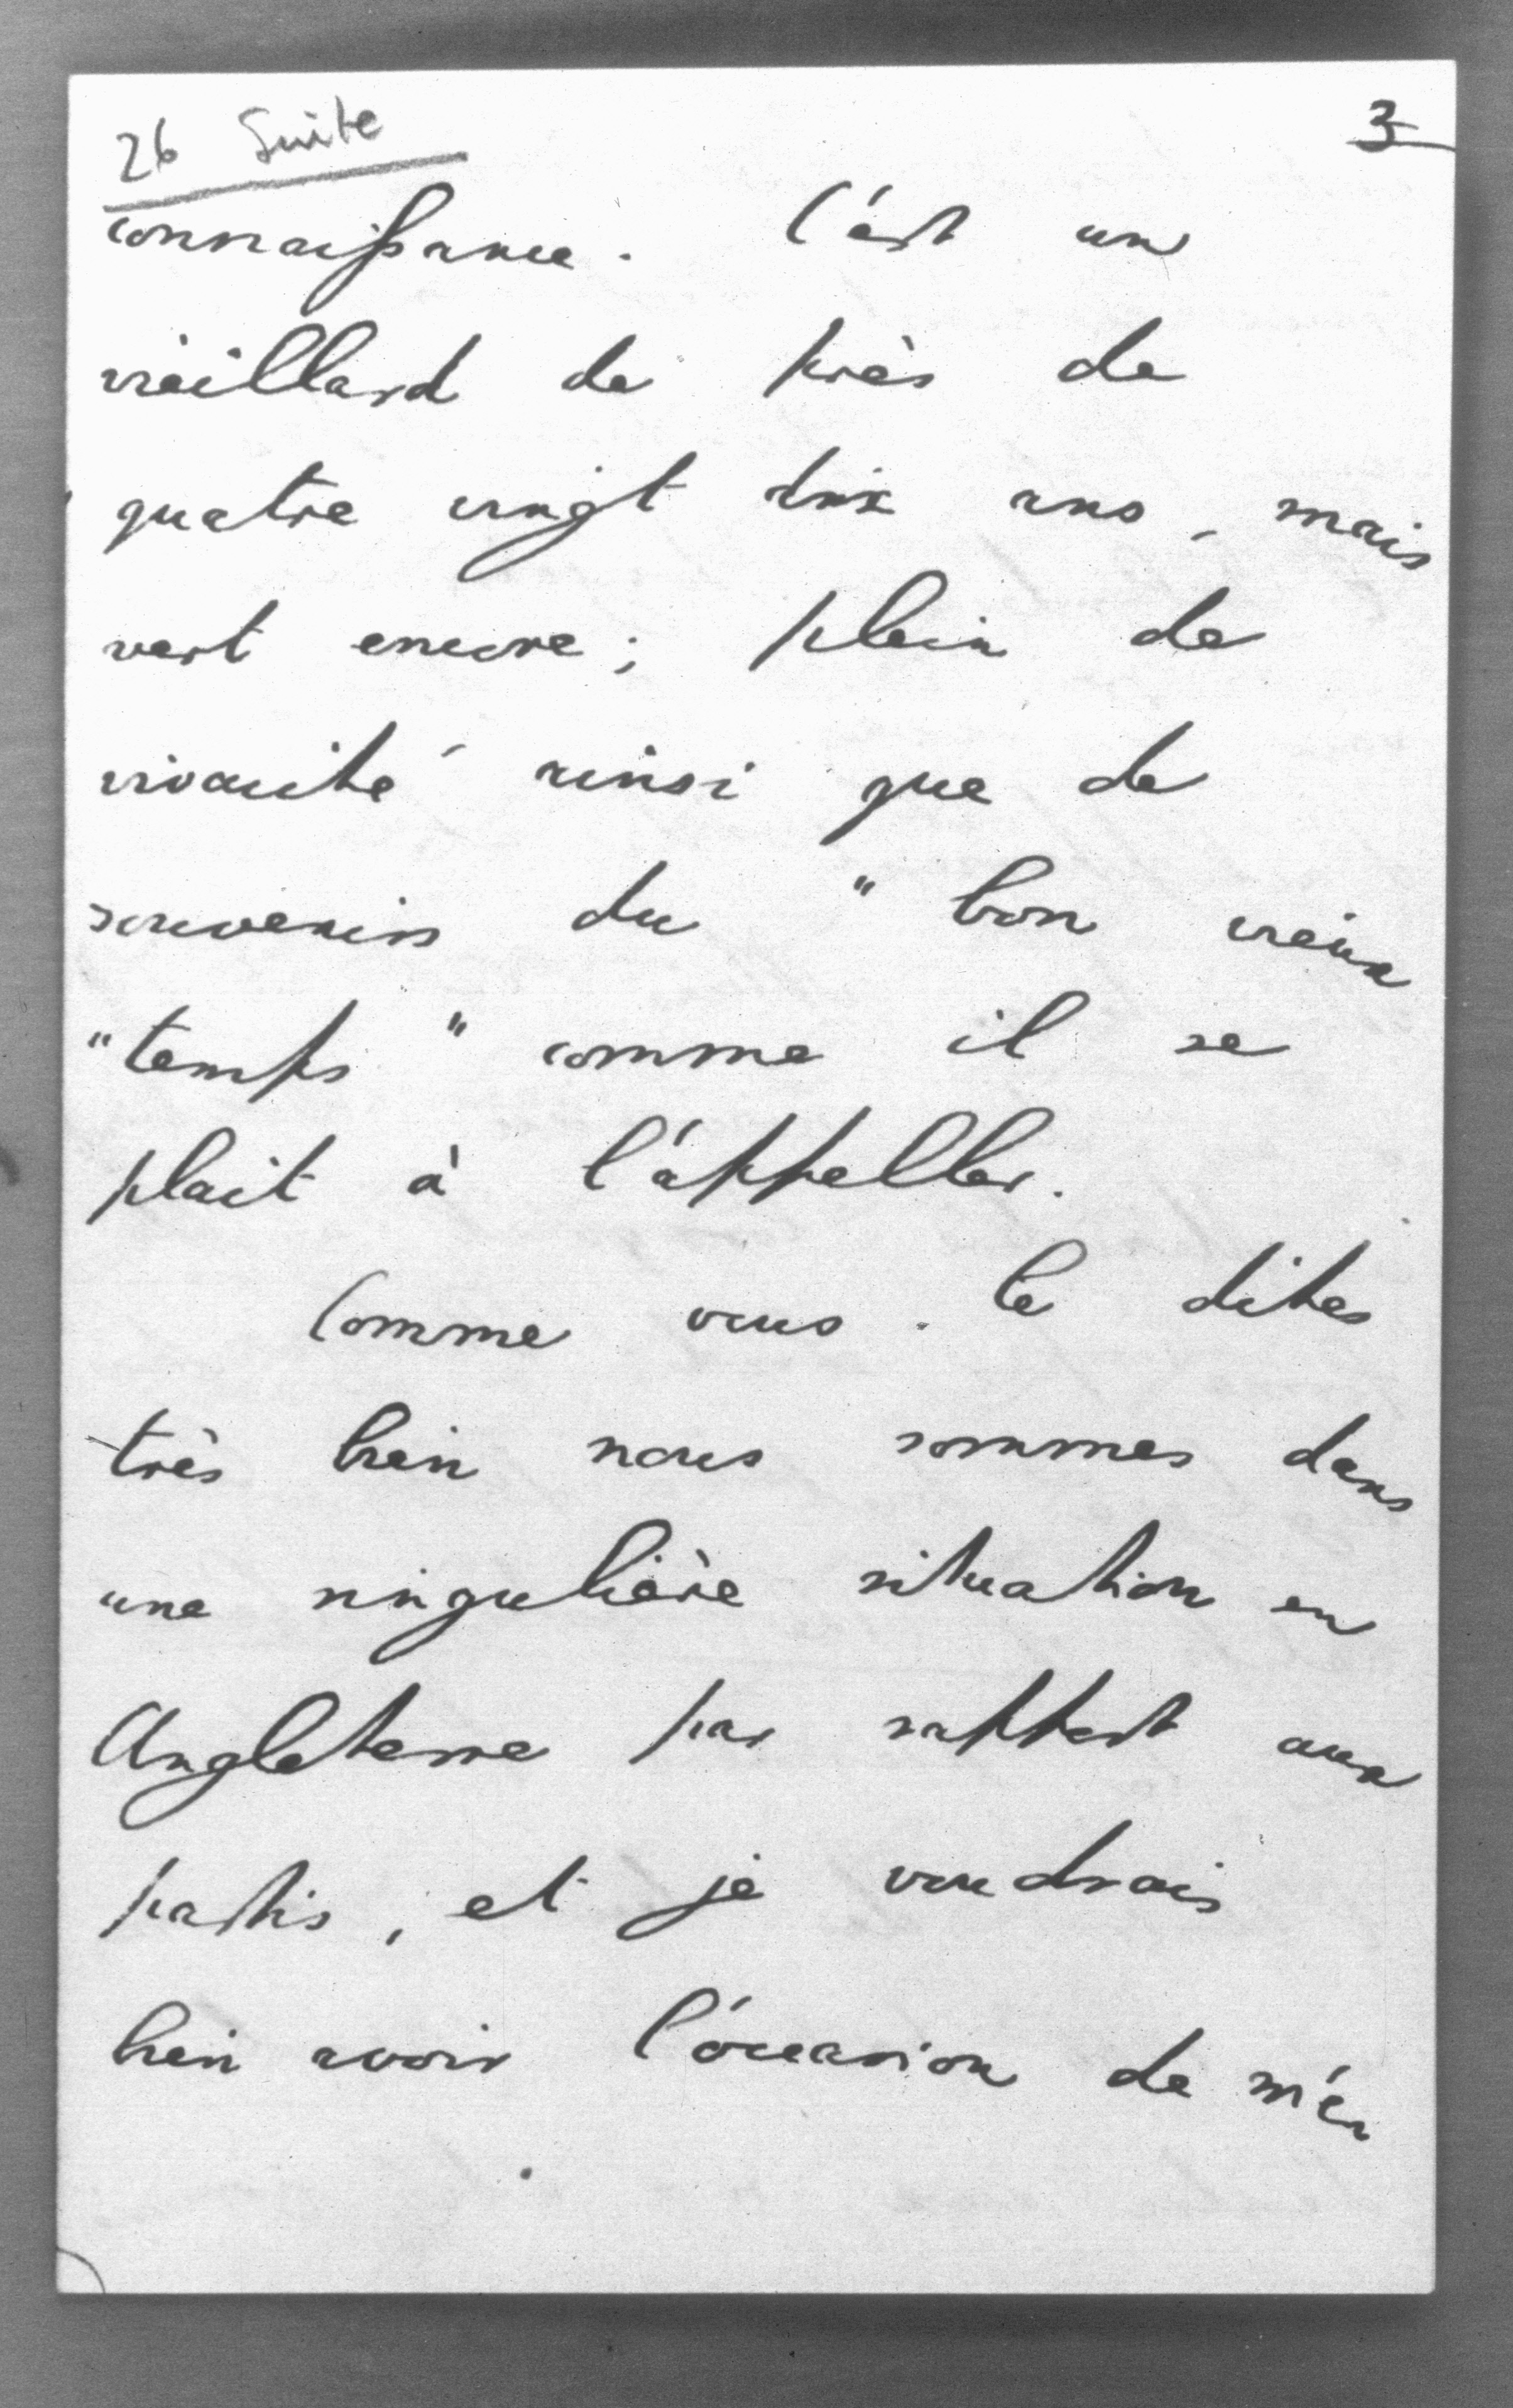 26 Suite
3
connaissance. C'est un
vieillard de près de
quatre vingt dix ans, mais
vert encore; plein de
vivacité ainsi que de
souvenirs du "bon vieux
"temps" comme il se
plait à l'appeller.
Comme vous le dites
très bien nous sommes dans
une singulière situation en
Angleterre par rapport aux
partis, et je voudrais
bien avoir l'occasion de m'en